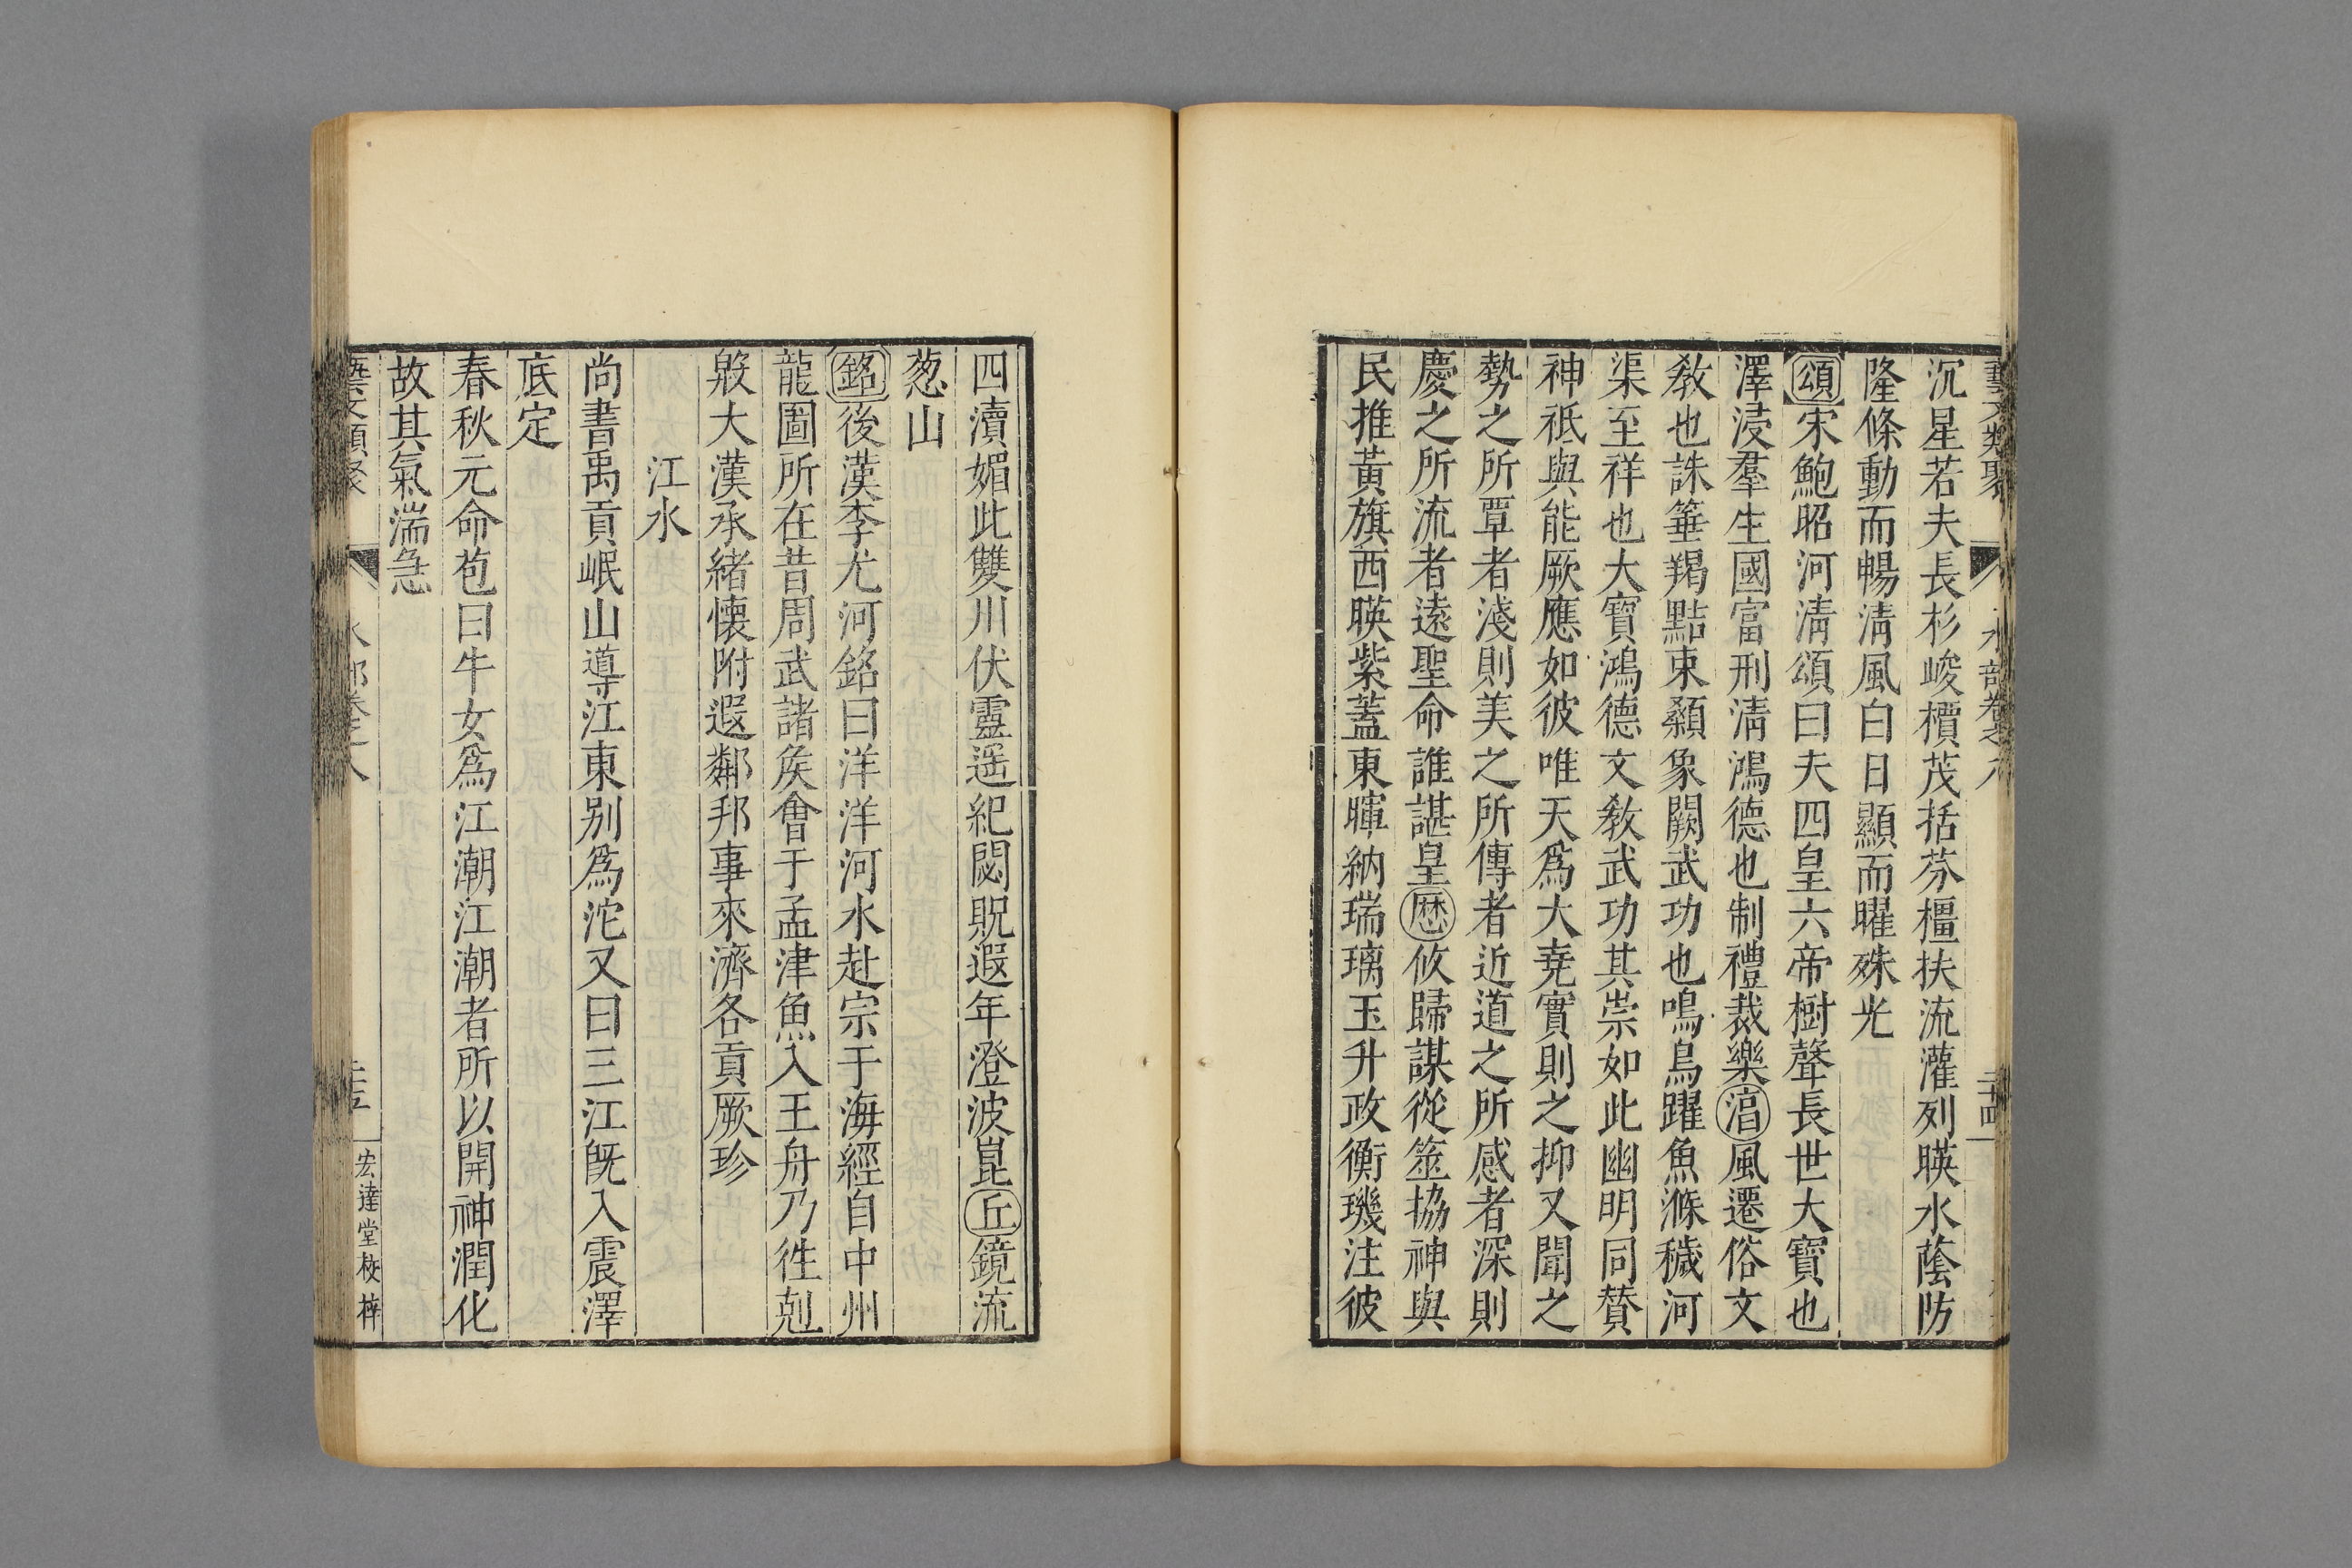 藝文類聚 水部卷之八 二十四
沉星若夫長杉峻檟茂括芬橿扶流灌列暎水蔭防
隆條動而暢淸風白日顯而曜殊光
頌宋鮑昭河淸頌曰夫四皇六帝樹聲長世大寶也
澤浸羣生國富刑淸鴻德也制禮裁樂㴠風遷俗文
敎也誅箠羯黠束顙象闕武功也鳴鳥躍魚滌穢河
渠至祥也大寶鴻德文敎武功其崇如此幽明同贊
神祇與能厥應如彼唯天爲大堯實則之抑又聞之
勢之所覃者淺則美之所傳者近道之所感者深則
慶之所流者遠聖命誰諶皇歷攸歸謀從筮協神與
民推黃旗西暎紫蓋東暉納瑞璃玉升政衡璣注彼
四瀆媚此雙川伏靈遥紀閟貺遐年澄波崑丘鏡流
葱山
銘後漢李尤河銘曰洋洋河水赴宗于海經自中州
龍圖所在昔周武諸矦會于孟津魚入王舟乃徃剋
殷大漢承緒懐附遐鄰邦事來濟各貢厥珍
江水
尚書禹貢岷山導江東别爲沱又曰三江旣入震澤
底定
春秋元命苞曰牛女爲江潮江潮者所以開神潤化
故其氣湍急
藝文類聚 水部卷之八 二十五 宏達堂校梓